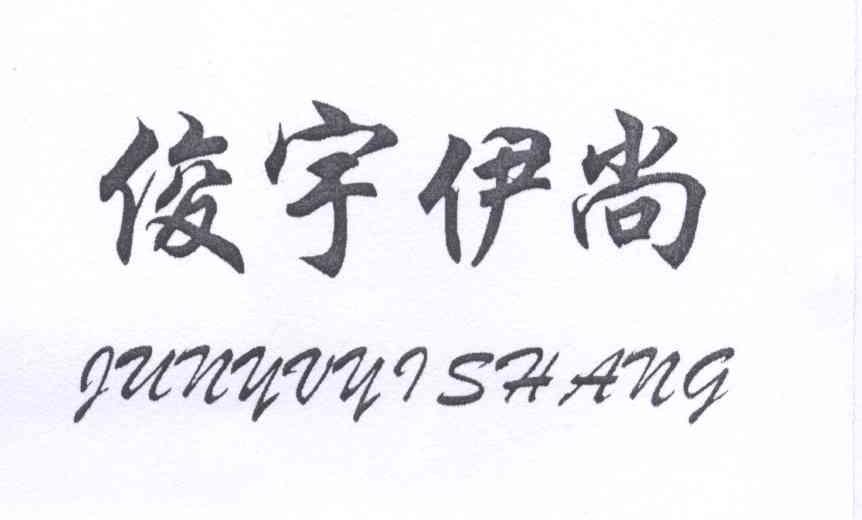 俊宇伊尚
JUNYVYISHANG